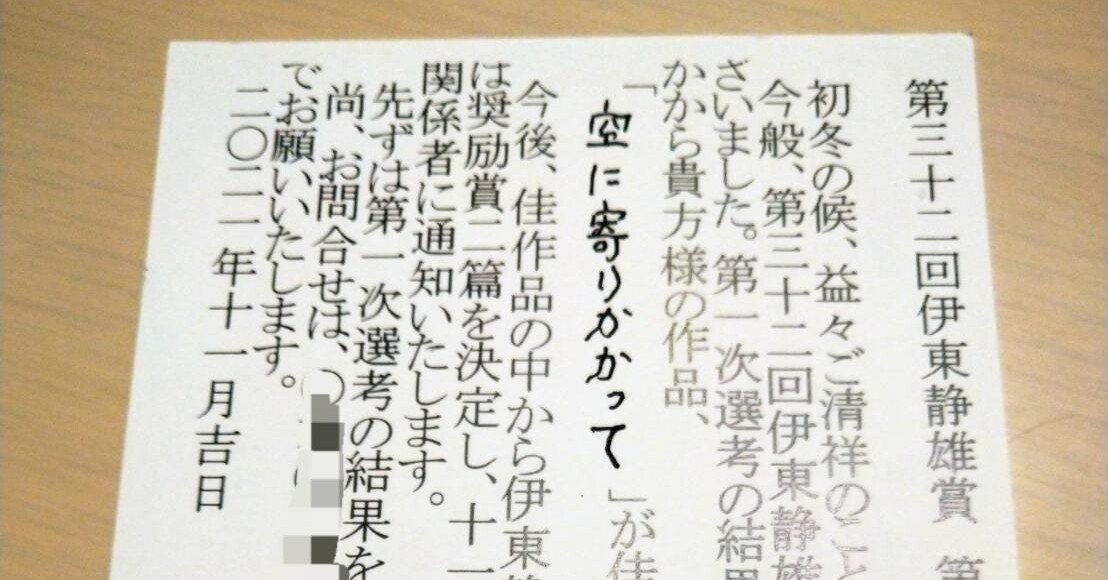 第三十二回伊東静雄賞 第
初冬の候、益々ご清祥のこと
今般、第三十二回伊東静雄
ざいました。第一次選考の結果
かから貴方様の作品、
「空に寄りかかって」が佳
今後、佳作品の中から伊東静
は奨励賞二篇を決定し、十一
関係者に通知いたします。
先ずは第一次選考の結果を
尚、お問合せは、〇
でお願いいたします。
二〇二一年十一月吉日